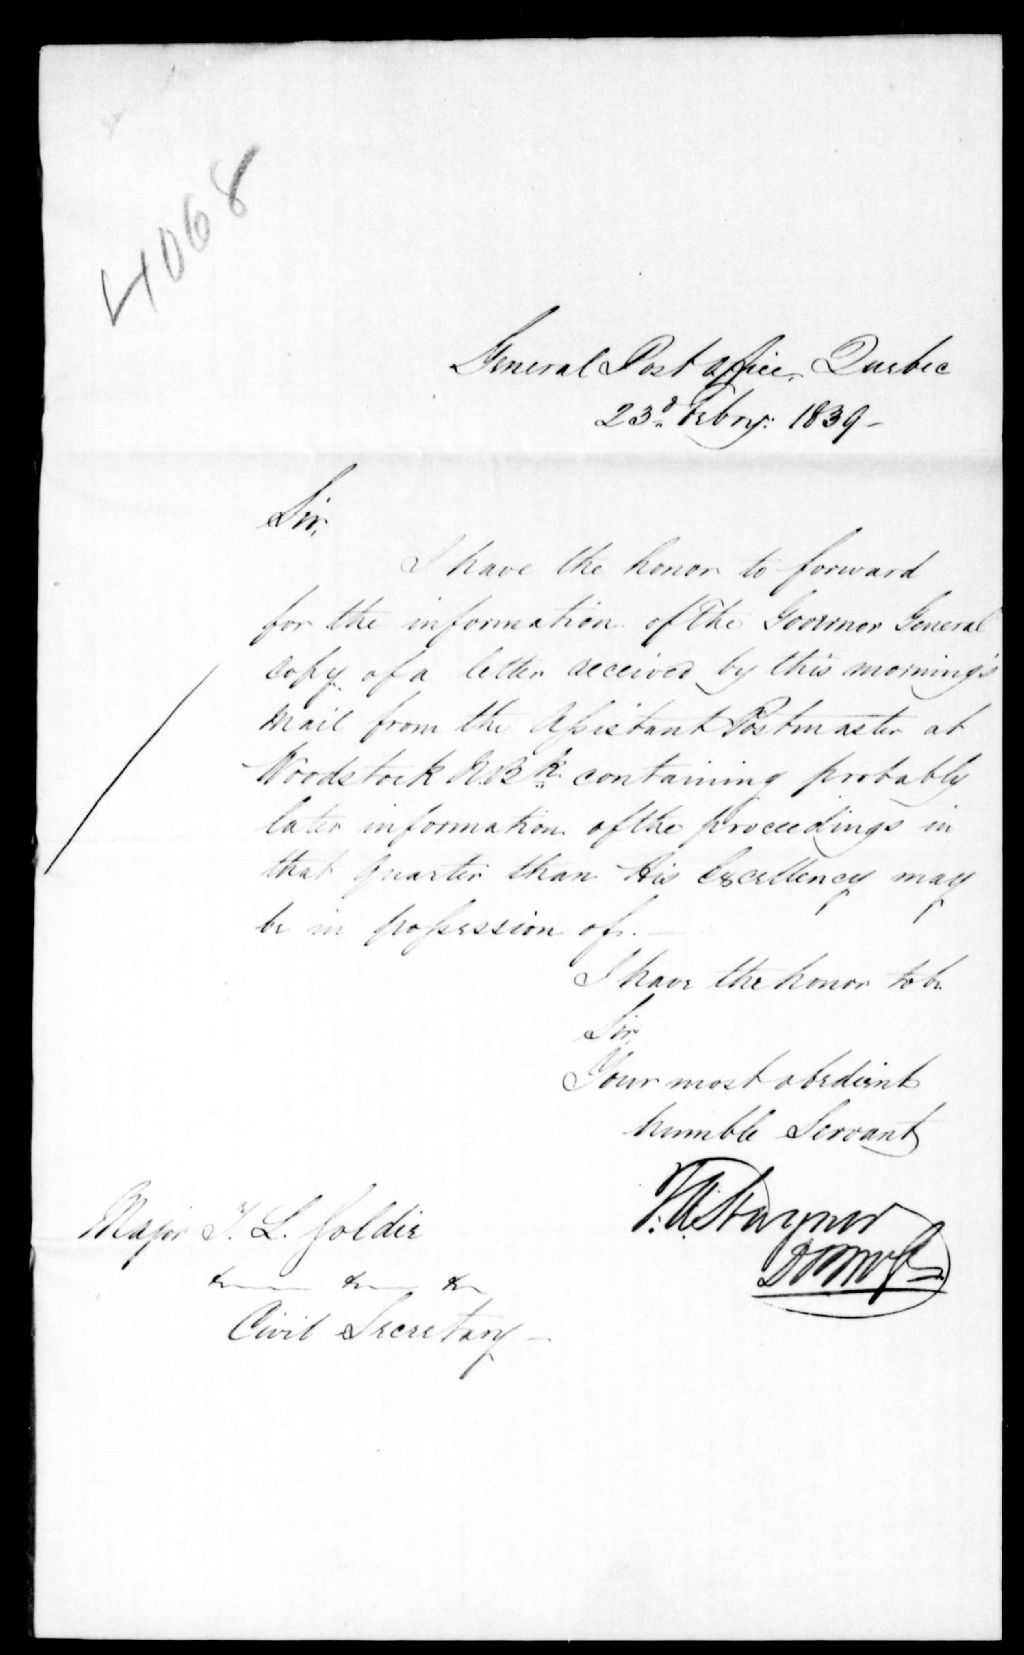 4068
General Post Office, Quebec
23d. Febry: 1839-
Sir,
I have the honor to forward
for the information of The Governor General
copy of a letter received by this morning's
Mail from the Assistant Postmaster at
Woodstock N.Bk. containing probably
later information of the proceedings in
that quarter than His Excellency may
be in possession of.-
I have the honor to be
Sir,
Your most obedient
humble Servant
T.A. Stayner
DPMG
Major T. L. Goldie
Civil Secretary-